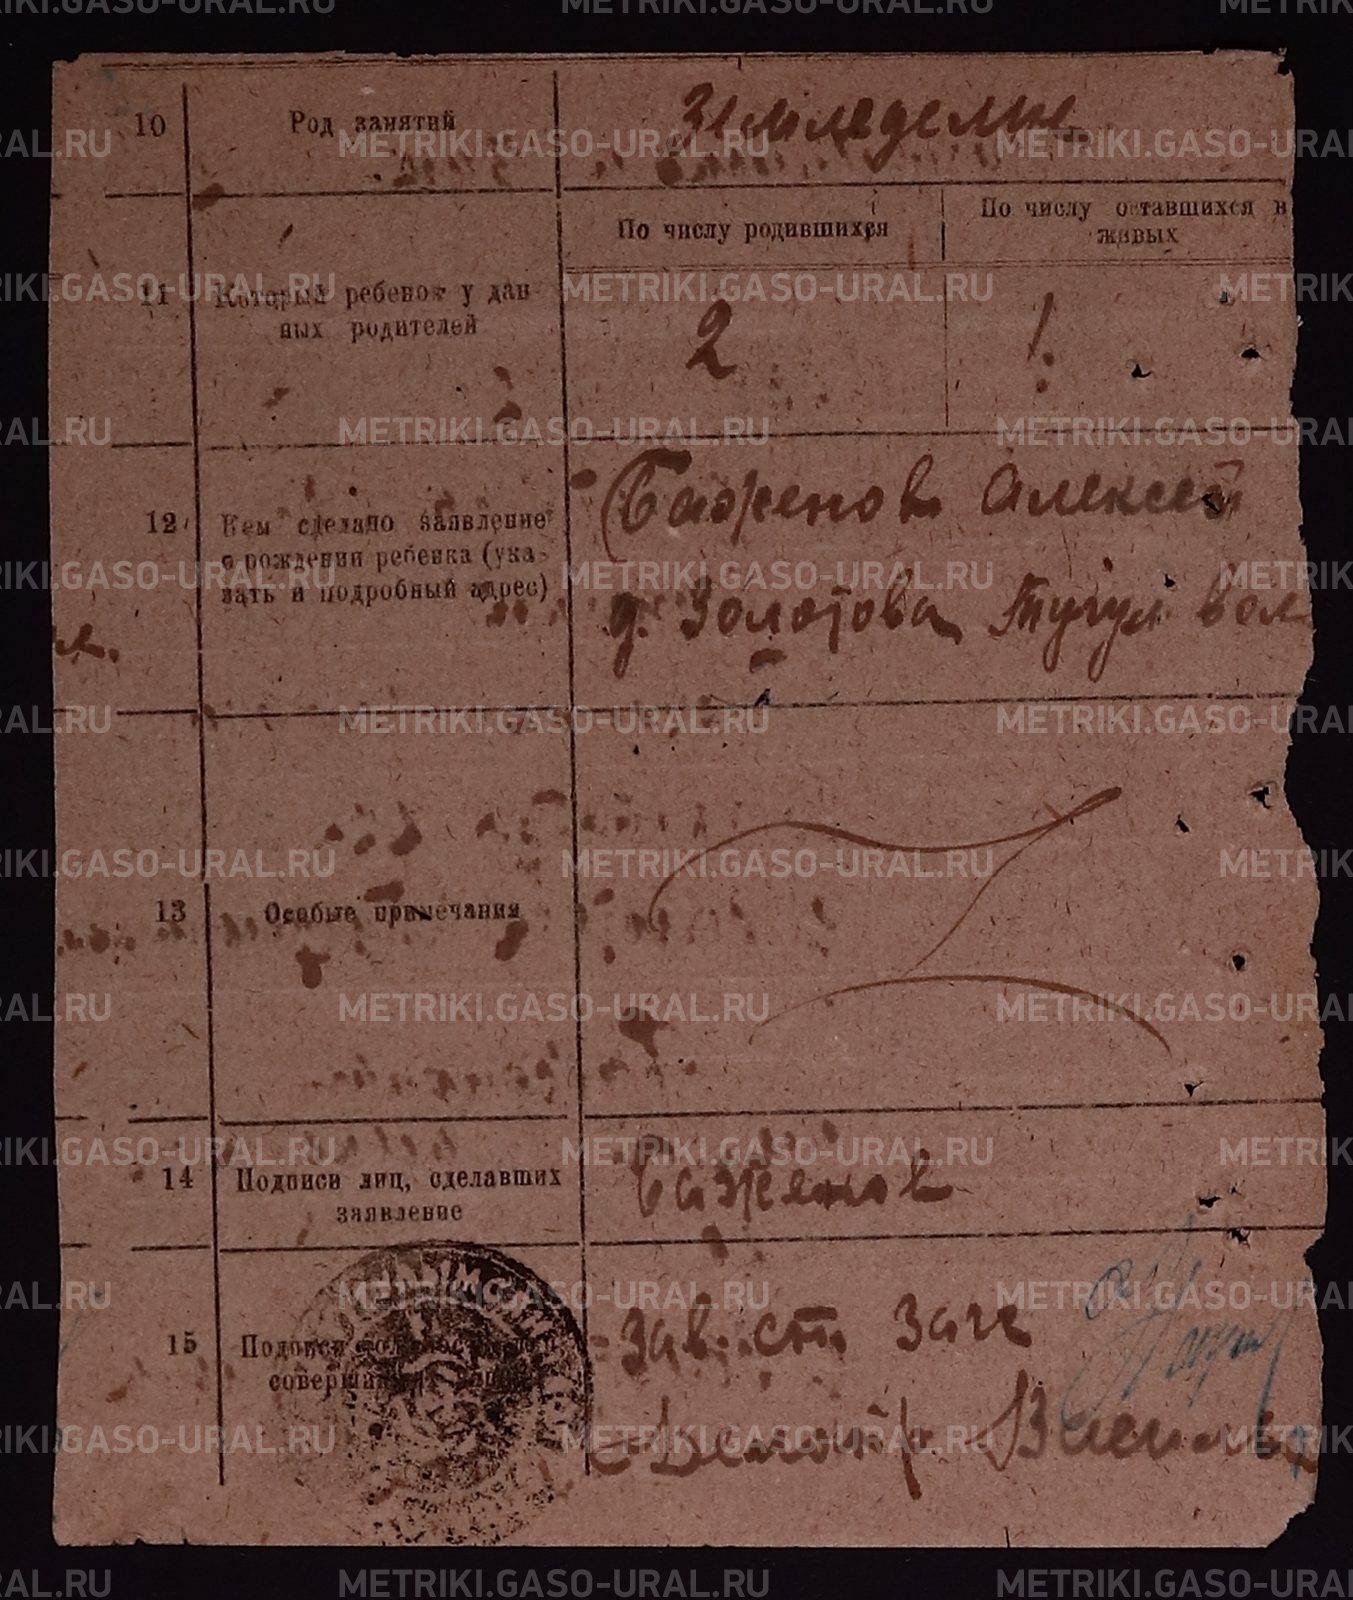 10 Род занятий Земледелие
По числу родившихся
По числу оставшихся в
живых
11 Который ребенок у дан-
ных родителей
2 1.
12 Кем сделано заявление
о рождении ребенка (ука-
зать и подробный адрес)
Баженов Алексей
д. Золотова Тугул вол
13 Особые примечания
14 Подписи лиц, сделавших
заявление
Баженов
15
Зав. ст. загс
METRIKI.GASO-URAL.RU